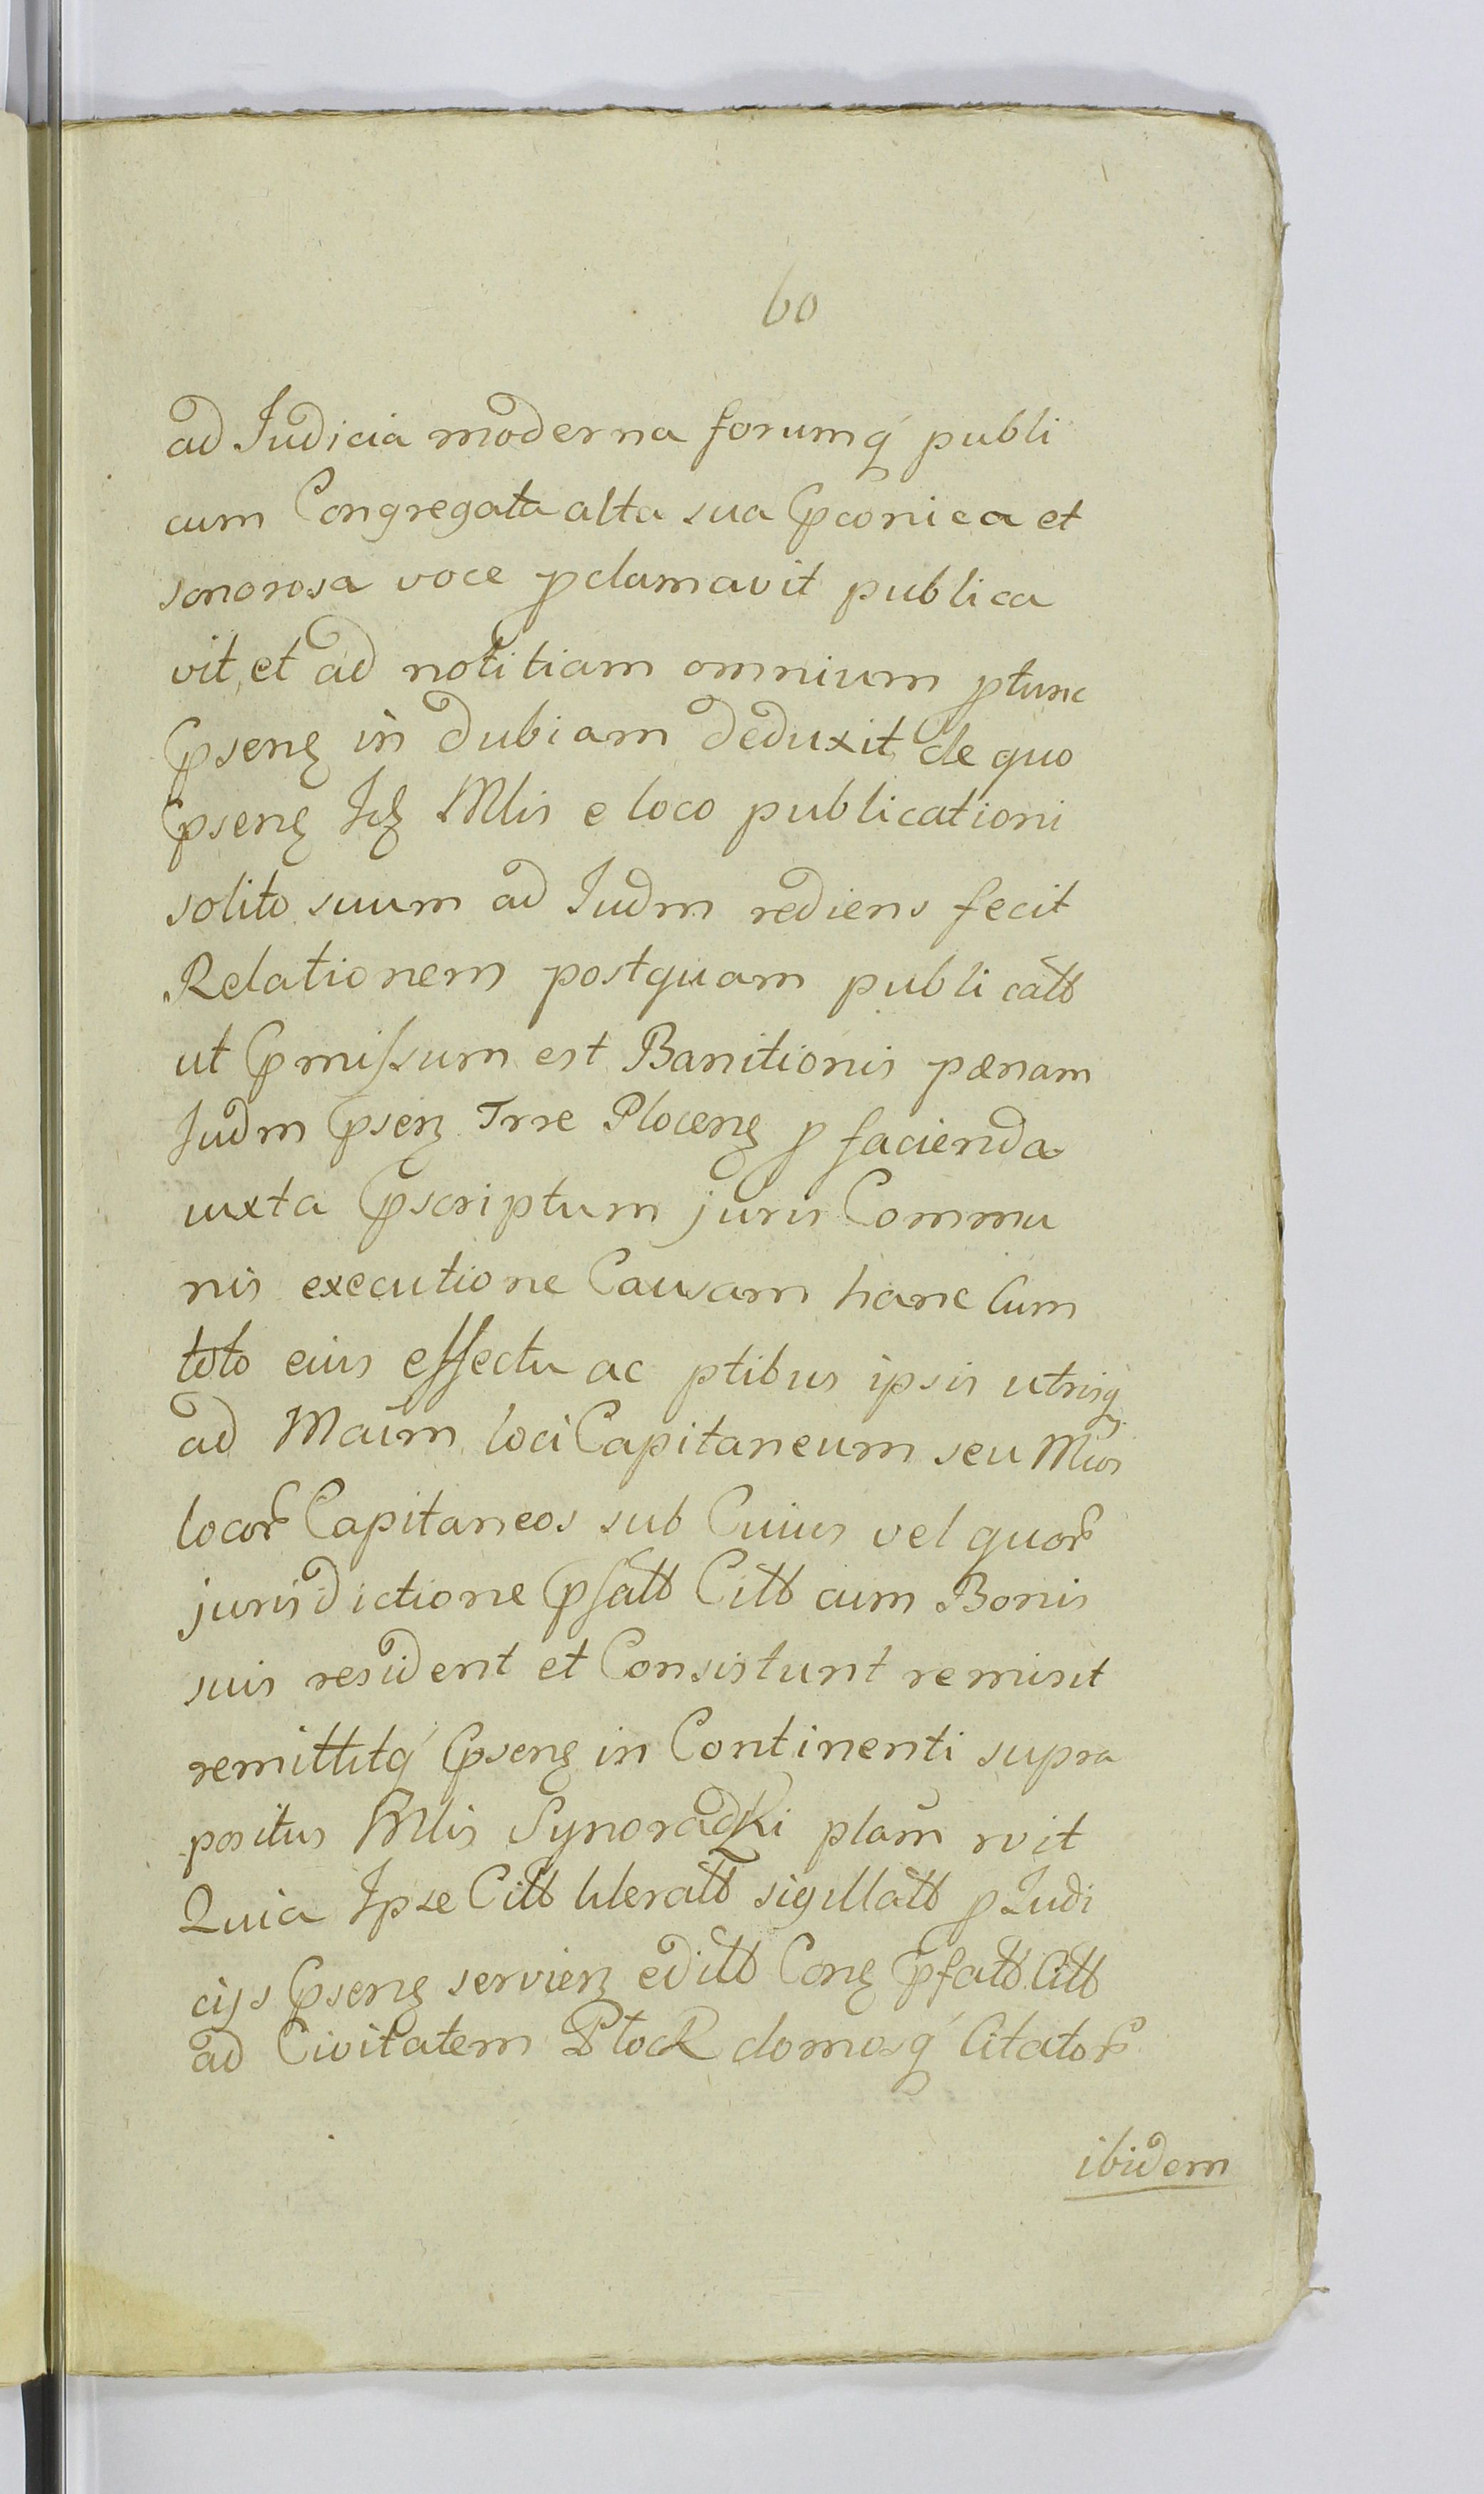 60
ad Judicia moderna forumq́ publi
cum Congregata alta sua p̃conica et
sonorosa voce pclamavit publica
vit, et ad notitiam omnium ptunc
p̃senꝫ in dubiam deduxit de quo
p̃senꝫ Idꝫ Mlis e loco publicationi
solito suum ad Judm rediens fecit
Relationem postquam publicatt
ut p̃missum est Banitionis pænam
Judm p̃senꝫ Trre Plocenꝫ p facienda
iuxta p̃scriptum juris Commu
nis executione Causam hanc Cum
toto eius effectu ac ptibus ipsis utrisq
ad Maĩm loci Capitaneum seu Mios
locor Capitaneos sub Cuius vel quor
jurisdictione p̃fatt Citt cum Bonis
suis resident et Consistunt remisit
remittitq́ p̃senꝫ in Continenti supra
positus Mlis Synoradzki plam̃ rvit
Quia Ipse Citt literatt sigillatt p Judi
cijs p̃senꝫ servienꝫ editt Conꝫ p̃fatt Citt
ad Civitatem Płock domosq́ Citator
ibidem